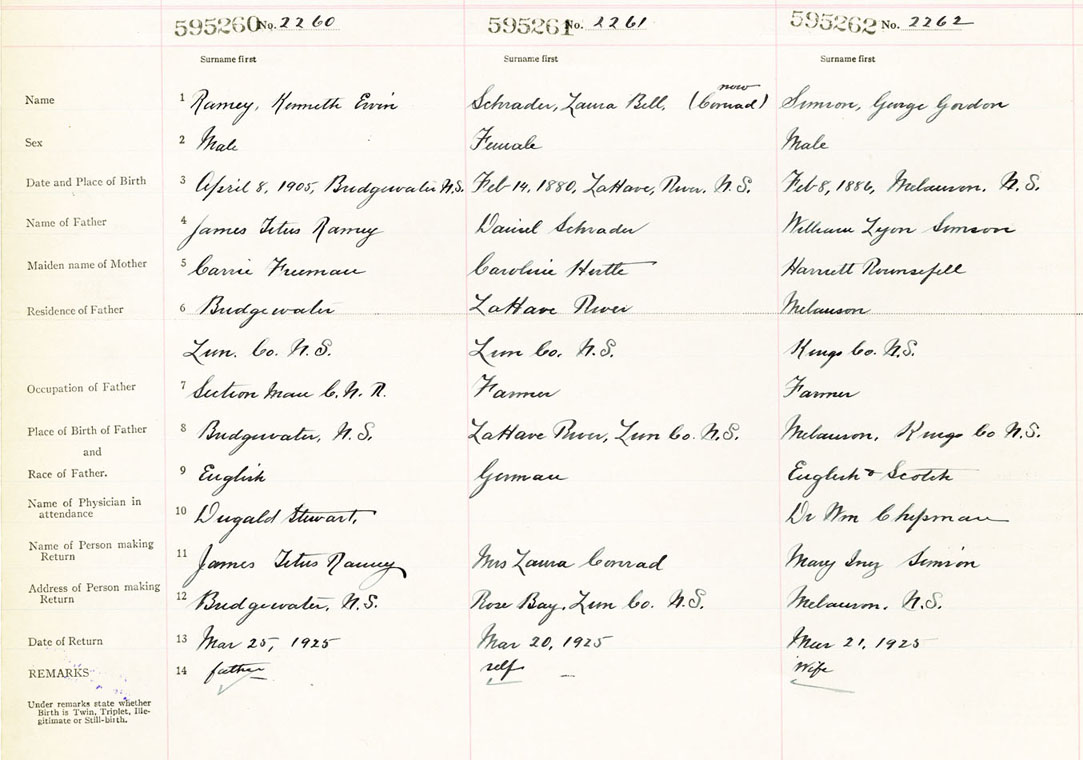 595260 No. 2260 595261 No. 2261 595262 No. 2262
Surname first Surname first Surname first
now
Name 1 Ramey, Kenneth Ervin Schrader, Laura Bell, (Conrad) Simson, George Gordon
Sex 2 Male Female Male
Date and Place of Birth 3 April 8, 1905, Bridgewater N.S. Feb 14, 1880, LaHave, River. N.S. Feb 8, 1886, Melanson. N.S.
Name of Father 4 James Titus Ramey Daniel Schrader William Lyon Simson
Maiden name of Mother 5 Carrie Freeman Caroline Hertle Harriett Rounsefell
Residence of Father 6 Bridgewater LaHave River Melanson
Lun. Co. N.S. Lun Co. N.S. Kings Co. N.S.
Occupation of Father 7 Section Man C.N.R. Farmer Farmer
Place of Birth of Father 8 Bridgewater, N.S. LaHave River, Lun Co. N.S. Melanson, Kings Co N.S.
and
Race of Father. 9 English German English & Scotch
Name of Physician in
attendance 10 Dugald Stewart, Dr Wm Chipman
Name of Person making
Return 11 James Titus Ramey Mrs Laura Conrad Mary Inez Simson
Address of Person making
Return 12 Bridgewater, N.S. Rose Bay, Lun Co. N.S. Melanson, N.S.
Date of Return 13 Mar 25, 1925 Mar 20, 1925 Mar 21, 1925
REMARKS 14 father self wife
Under remarks state whether
Birth is Twin, Triplet, Ille-
gitimate or Still-birth.